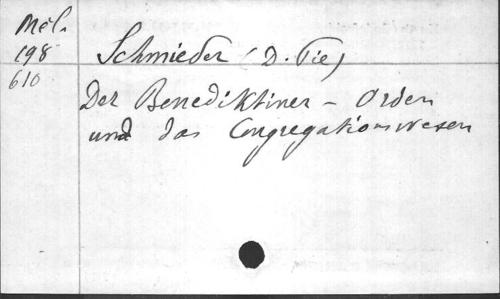 Mél.
198
610
Schmieder (D. Pie)
Der Benediktiner - Orden
und das Congregationswesen